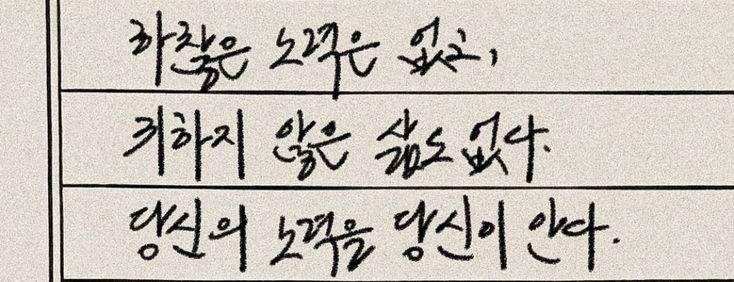 하찮은 노력은 없고,
귀하지 않은 삶도 없다.
당신의 노력을 당신이 안다.